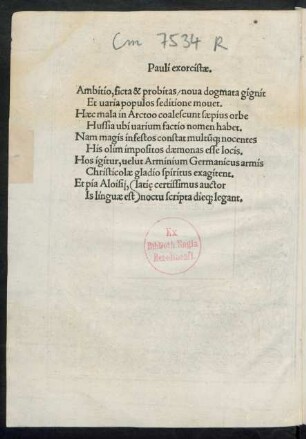 Cm 7534 R
Pauli exorcistæ.
Ambitio, ficta & probitas/noua dogmata gignit
Et uaria populos seditione mouet.
Hæc mala in Arctoo coalescunt sæpius orbe
Hussia ubi uarium factio nomen habet.
Nam magis infestos constat multisq; nocentes
His olim impositos dæmonas esse locis.
Hos igitur, uelut Arminium Germanicus armis
Christicolæ gladio spiritus exagitent.
Et pia Aloisij, (latię certissimus auctor
Is linguæ est) noctu scripta dieq; legant.
Ex
Biblioth. Regia